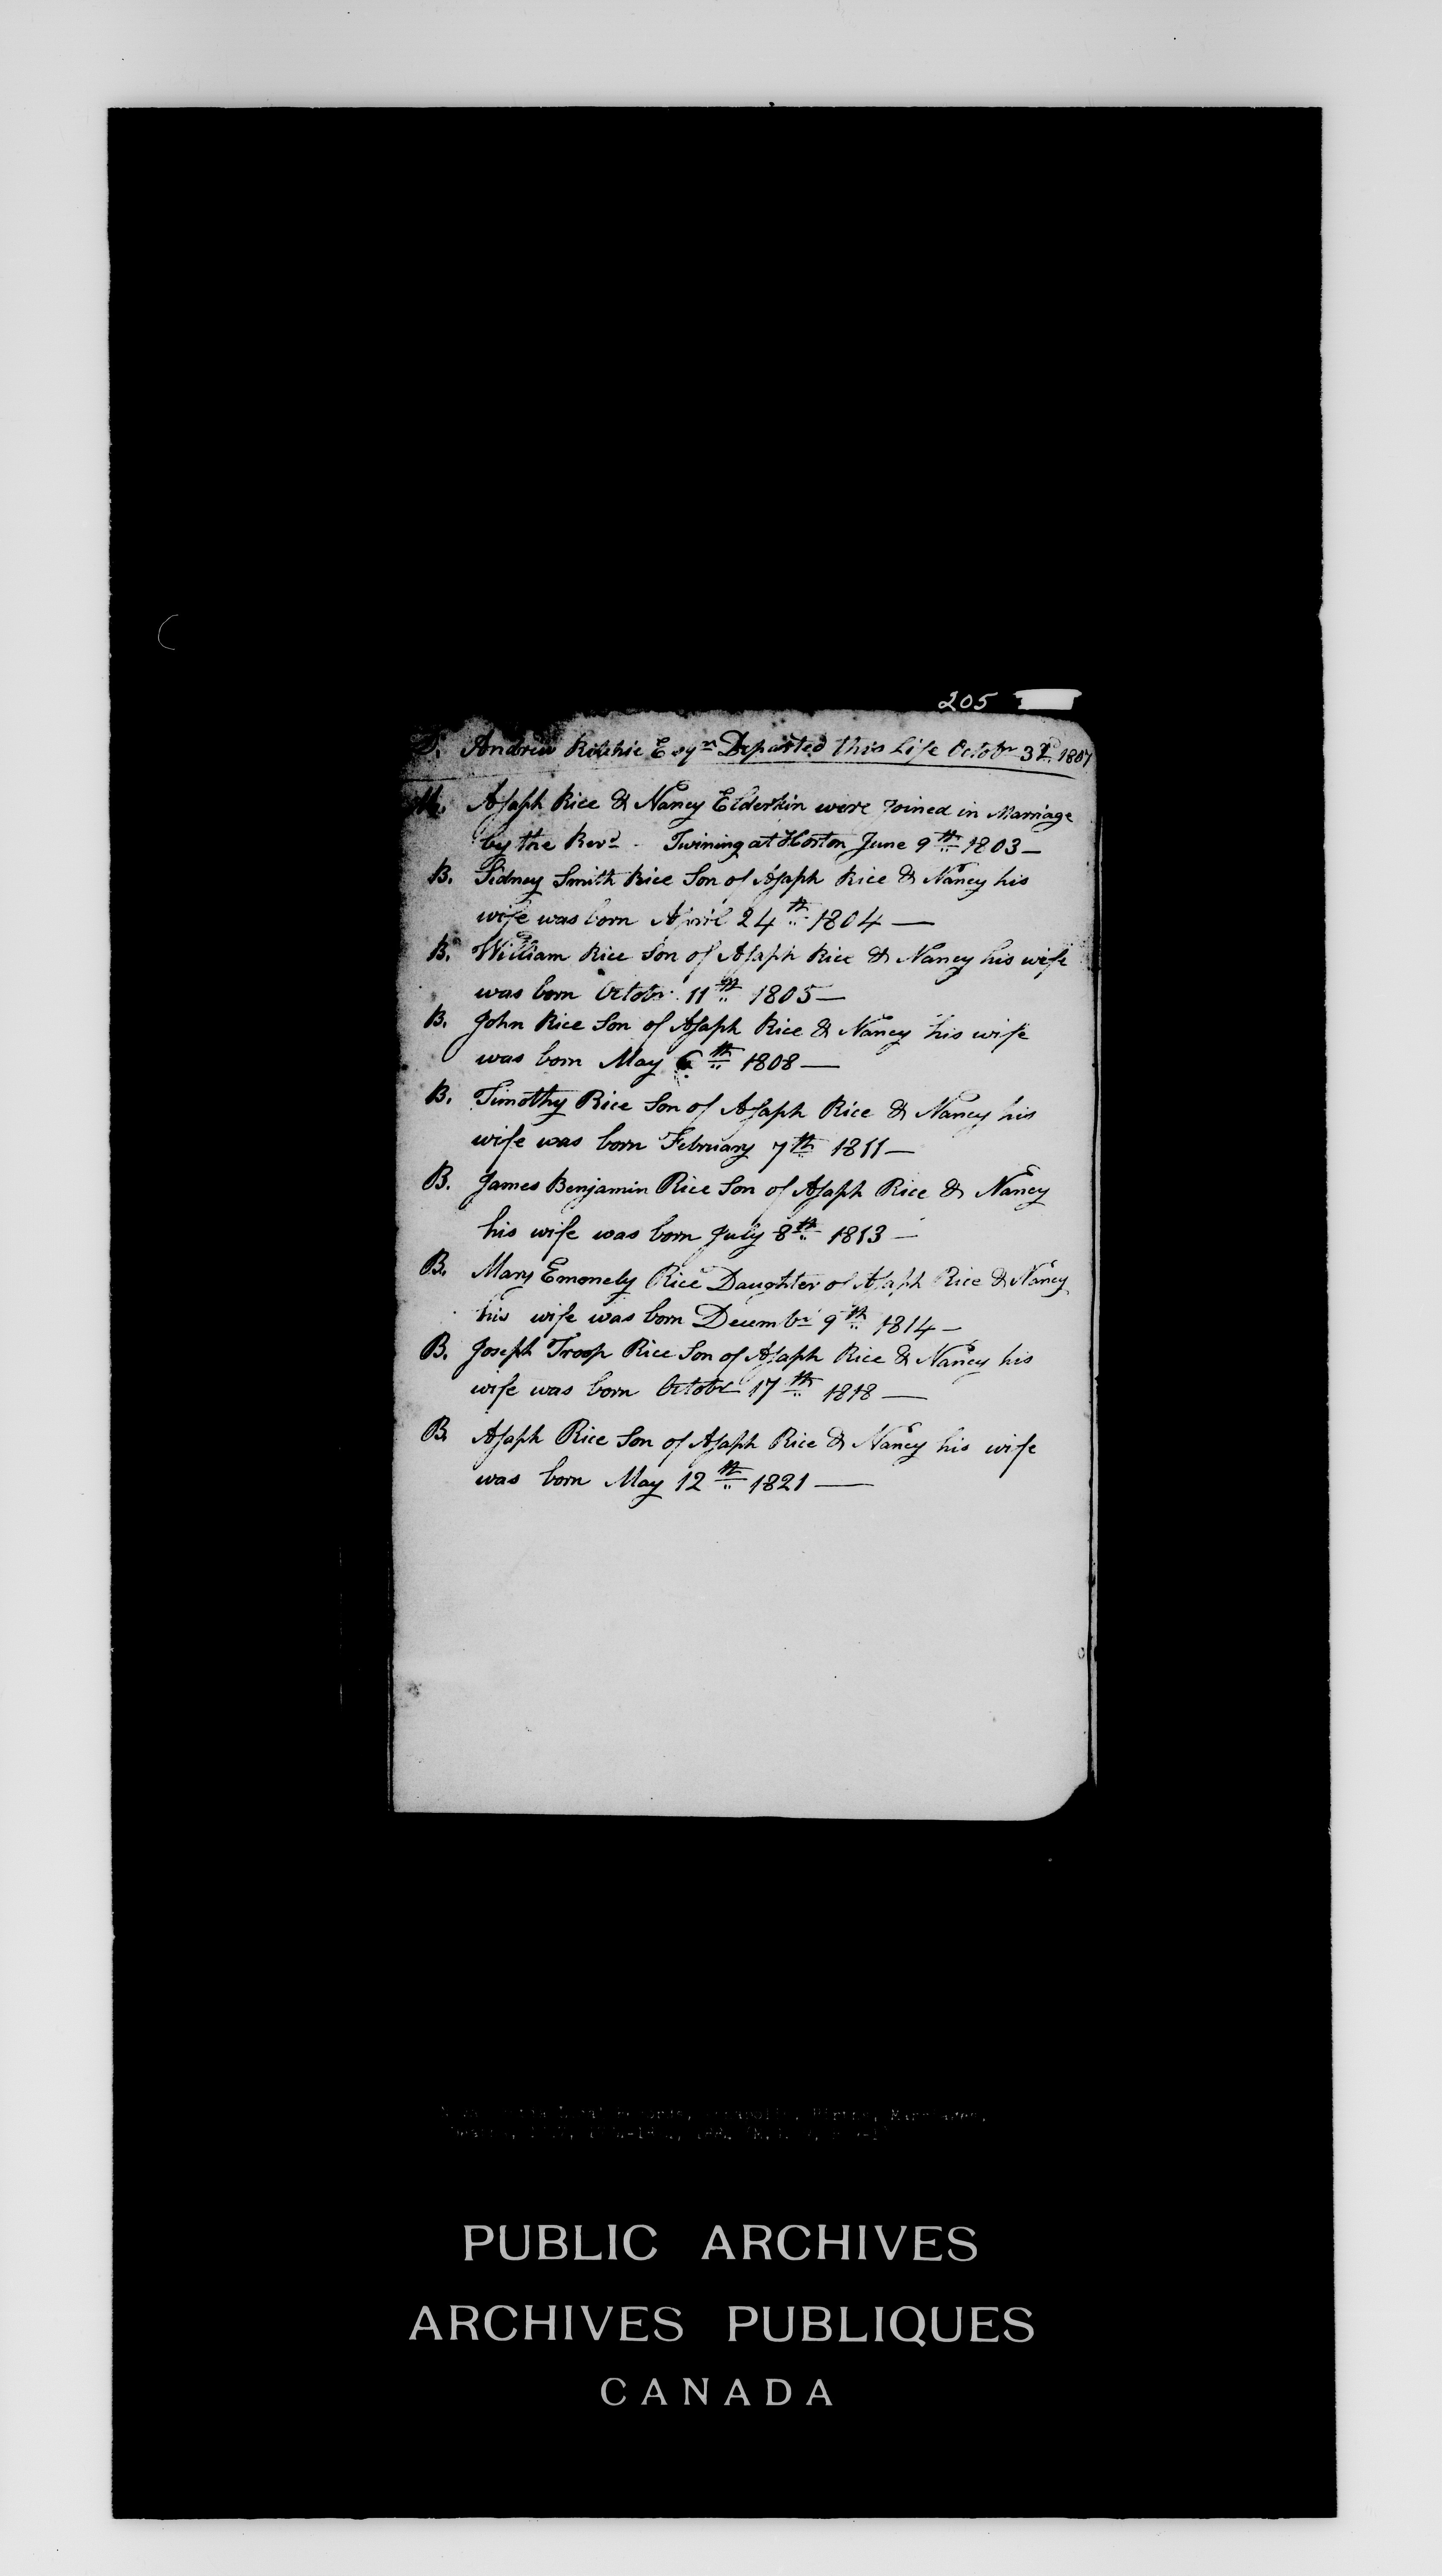 205
D. Andrew Ritchie Esqr. Departed this Life Octobr 3d. 1807
M. Asaph Rice & Nancy Elderkin were Joined in Marriage
by the Revd. - Twining at Horton June 9th 1803—
B. Sidney Smith Rice Son of Asaph Rice & Nancy his
wife was born April 24th 1804—
B. William Rice Son of Asaph Rice & Nancy his wife
was born Octobr. 11th 1805—
B. John Rice Son of Asaph Rice & Nancy his wife
was born May 6th 1808—
B. Timothy Rice Son of Asaph Rice & Nancy his
wife was born February 7th 1811—
B. James Benjamin Rice Son of Asaph Rice & Nancy
his wife was born July 8th 1813—
B. Mary Emonely Rice Daughter of Asaph Rice & Nancy
his wife was born Decembr 9th 1814—
B. Joseph Troop Rice Son of Asaph Rice & Nancy his
wife was born Octobr 17th 1818—
B. Asaph Rice Son of Asaph Rice & Nancy his wife
was born May 12th 1821—
PUBLIC ARCHIVES
ARCHIVES PUBLIQUES
CANADA